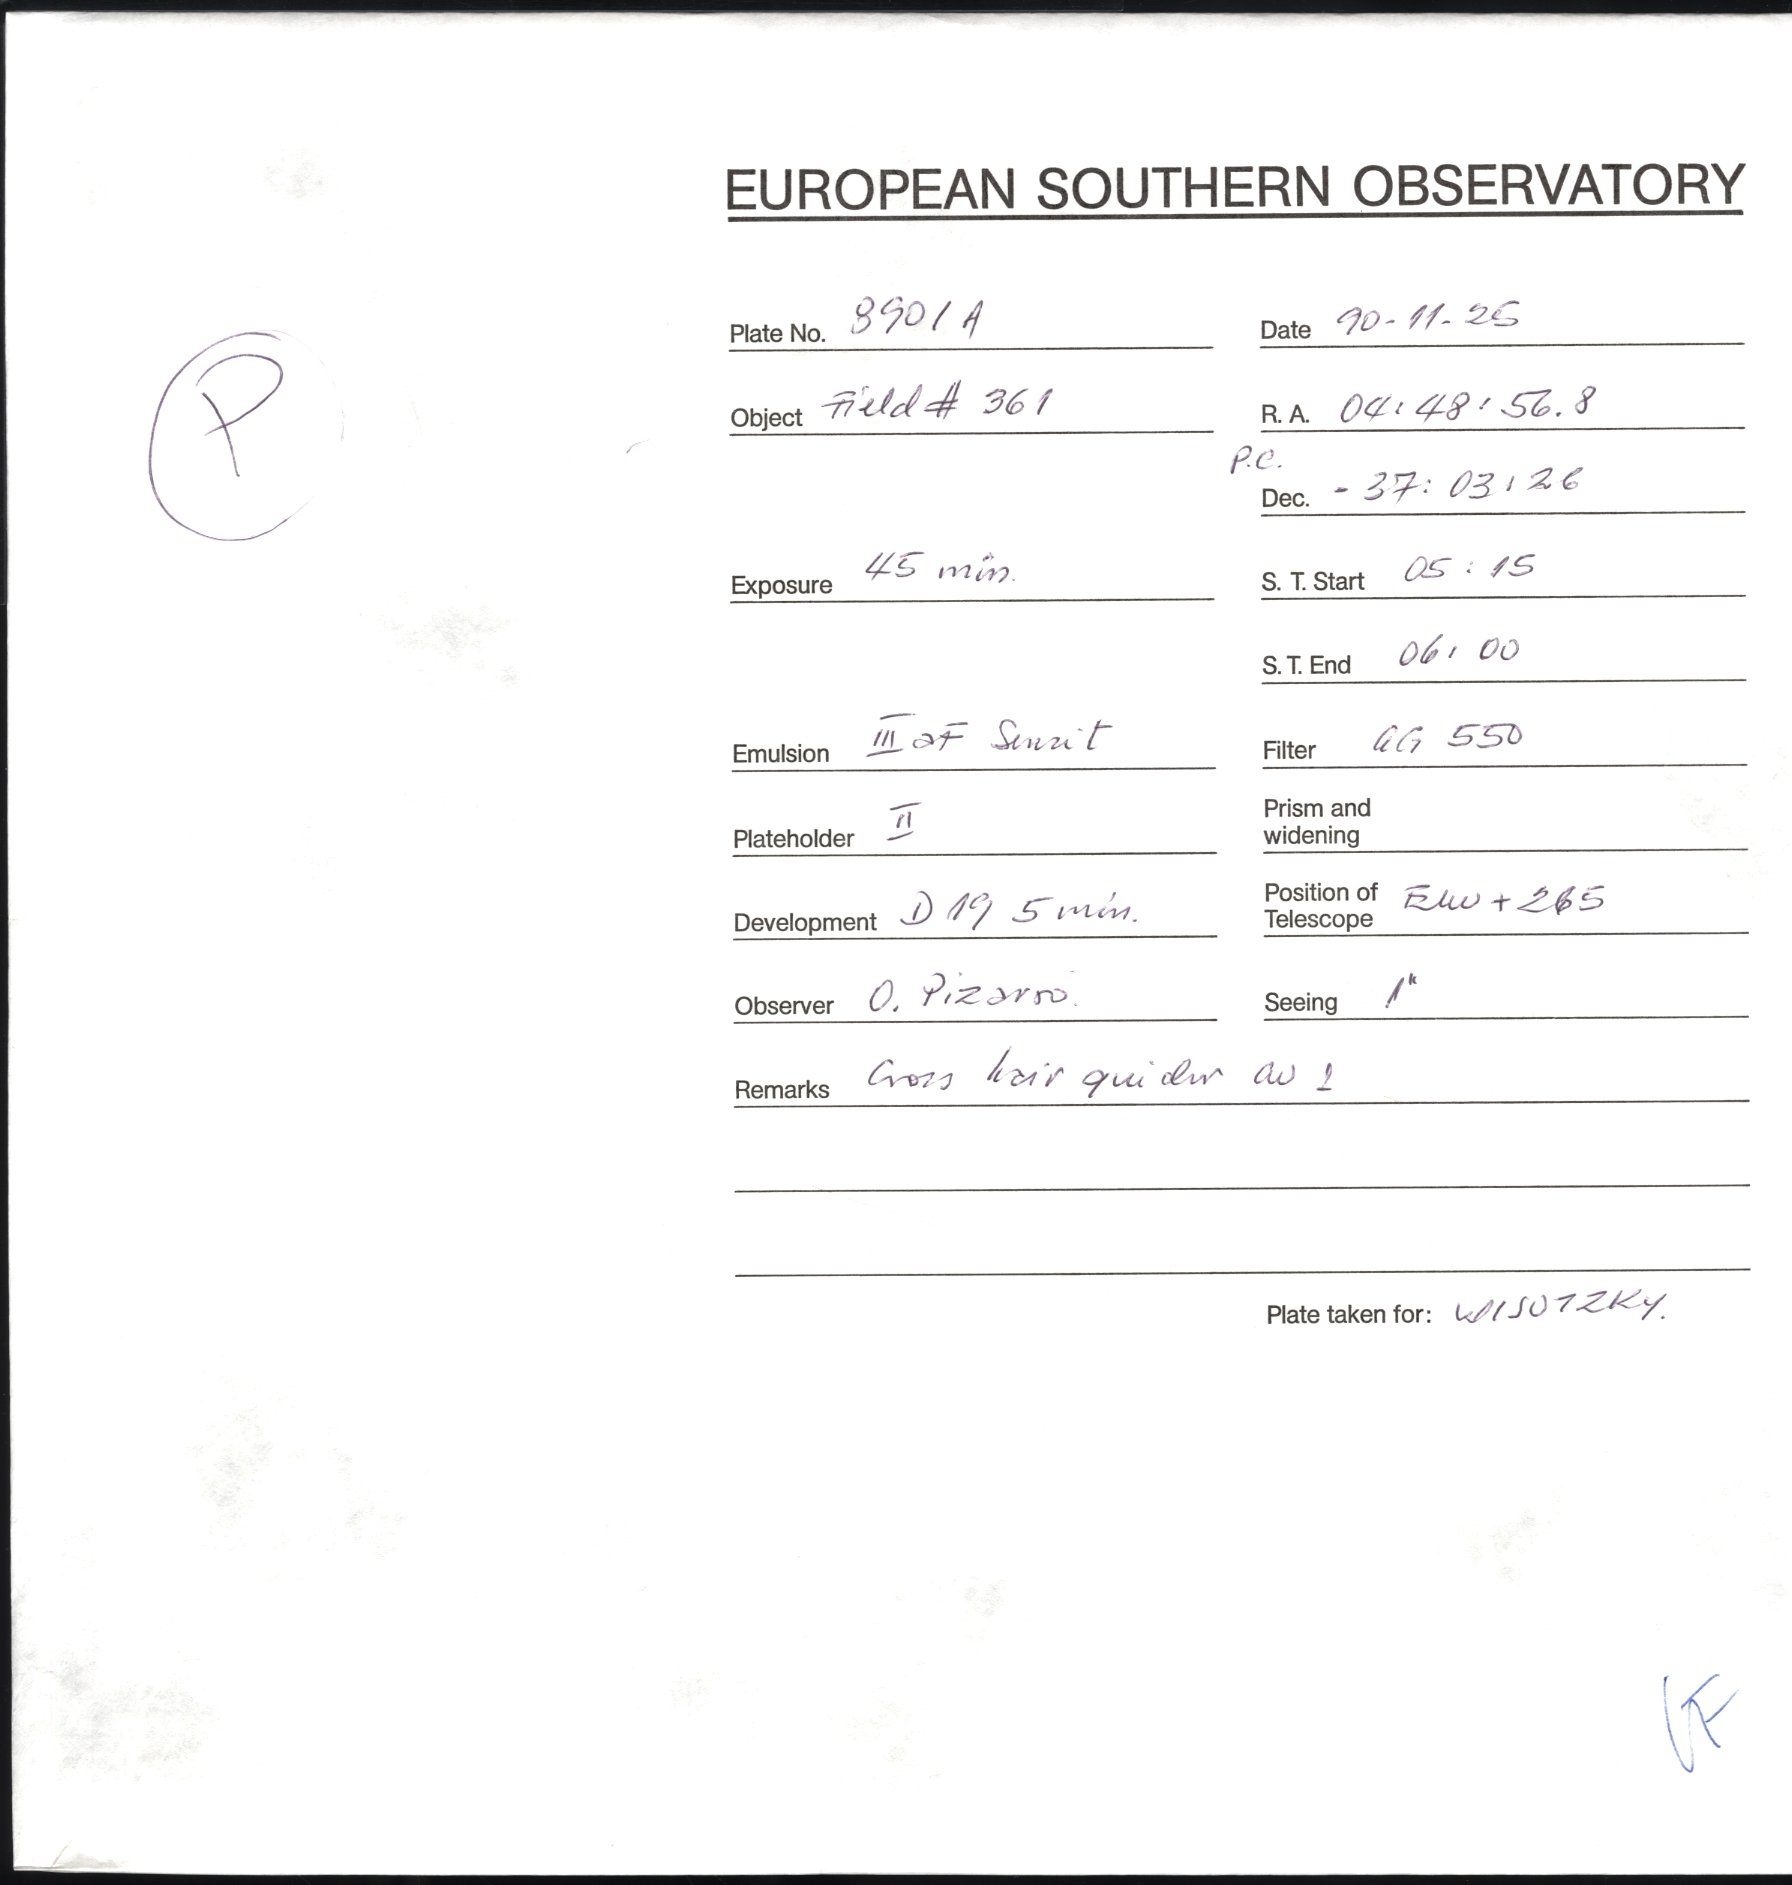 EUROPEAN SOUTHERN OBSERVATORY
Plate No. 8901 A Date 90-11-25
Object Field # 361 R. A. 04:48:56.8
P.C.
Dec. - 37:03:26
Exposure 45 min. S. T. Start 05:15
S. T. End 06:00
P
Emulsion III aF Sensit Filter GG 550
Plateholder II Prism and
widening
Development D 19 5 min. Position of
Telescope + 265
Observer O. Pizarro. Seeing 1"
Remarks Cross hair guider
Plate taken for: WISOTZKY.